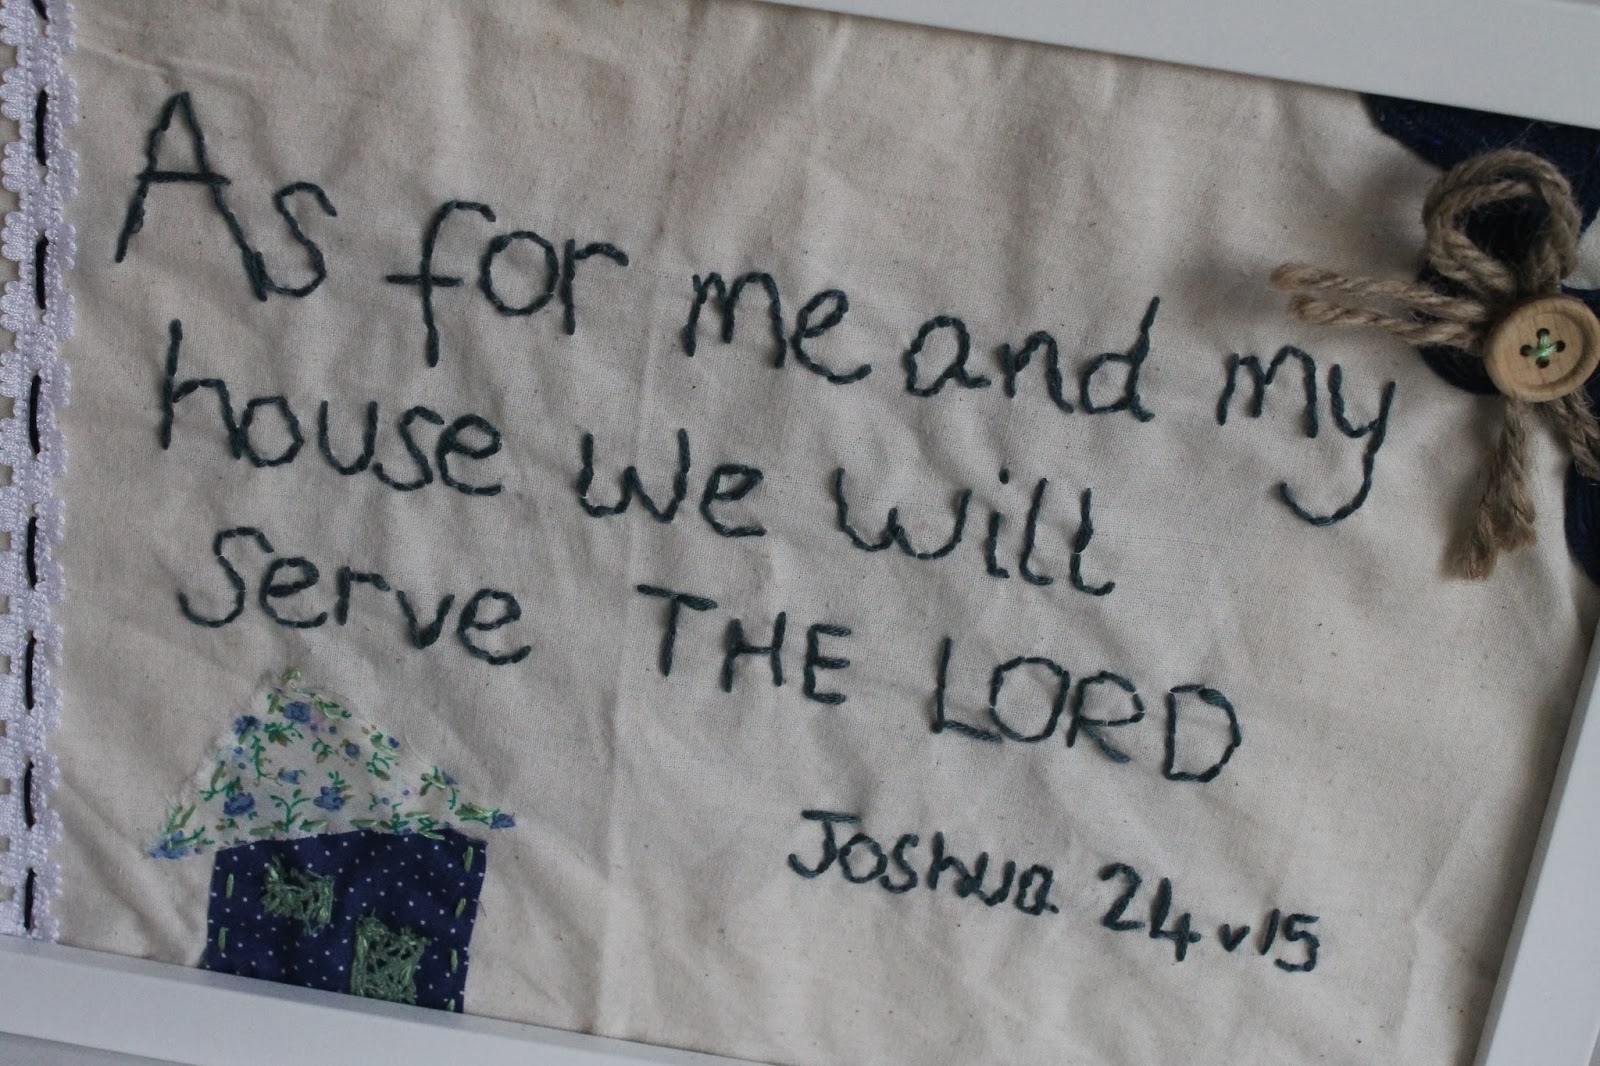 As for me and my
house we will
serve THE LORD
Joshua 24 v 15